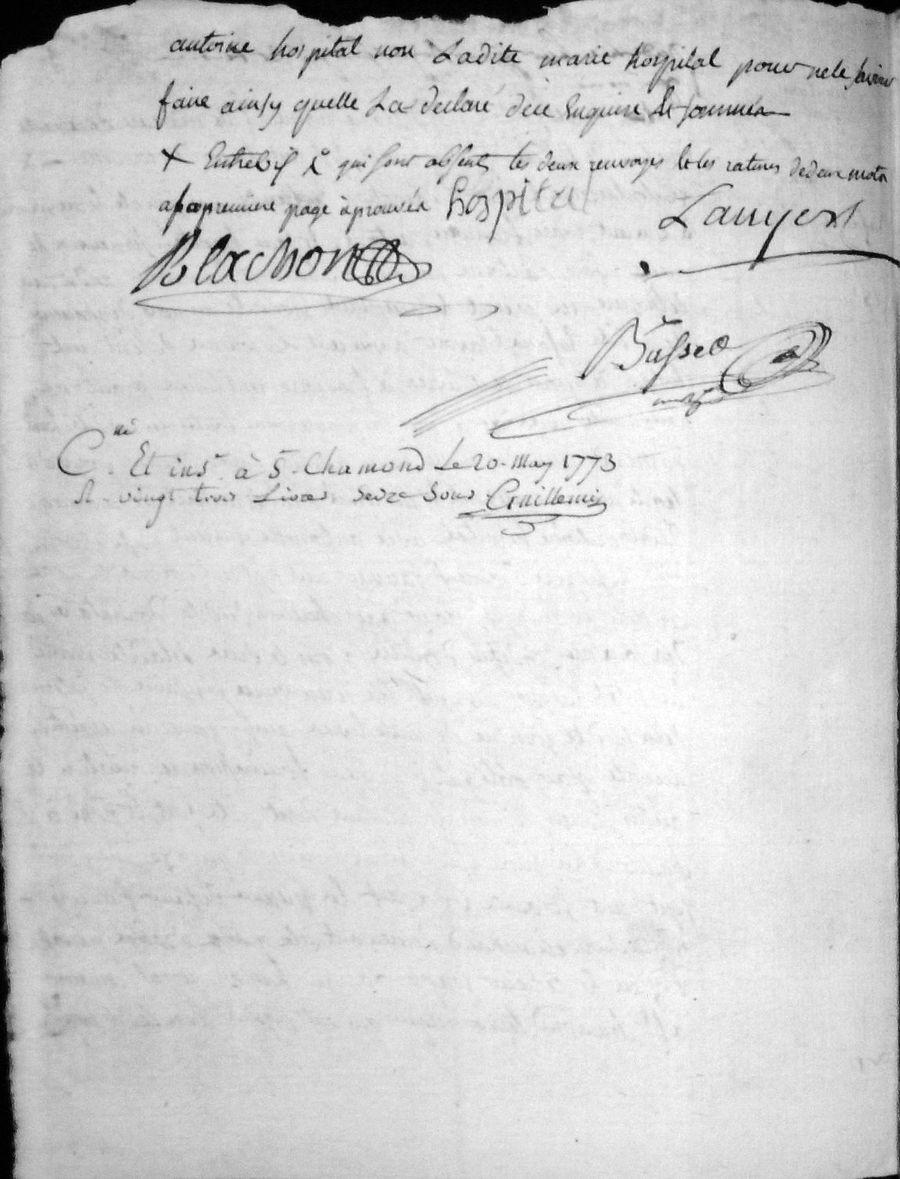 antoine hospital non Ladite marie hospital pour ne le savoir
faire ainsy quelle La declaré dece Enquise et sommée
+ qui sont absents les deux renvoyes et les ratures de deux mots
premiere page aprouvés hospital Lanyers
Blachon
Basset
C.né Et ins.é à S.t Chamond Le 20 May 1773
R. vingt trois Livres seize Sous Guillemin